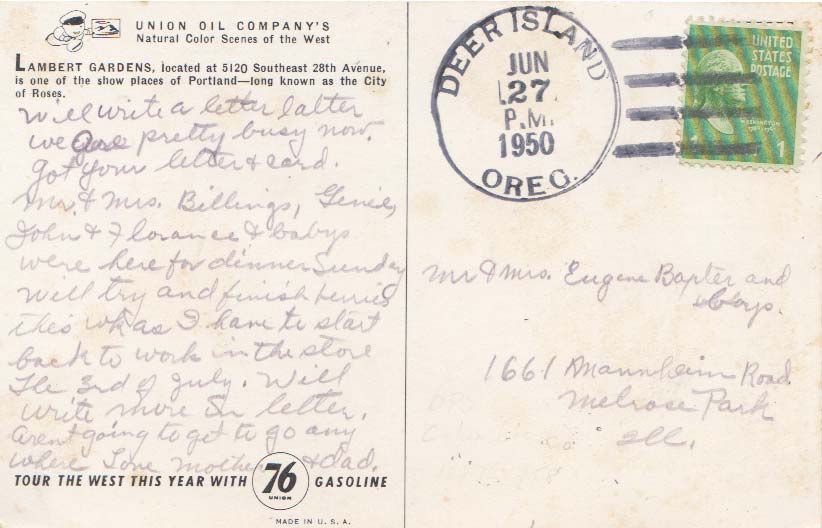 UNION OIL COMPANY'S
Natural Color Scenes of the West
LAMBERT GARDENS, located at 5120 Southeast 28th Avenue,
is one of the show places of Portland—long known as the City
of Roses.
Will write a letter latter
we are pretty busy now.
Got your letter & card.
Mr. & Mrs. Billings, Genie,
John & Florance & babys
were here for dinner Sunday
Will try and finish berries
this wk as I have to start
back to work in the store
the 3rd of July. Will
write more in letter.
Arent going to get to go any
where Love Mother & Dad.
TOUR THE WEST THIS YEAR WITH 76 UNION GASOLINE
MADE IN U. S. A.
DEER ISLAND
JUN
27
P.M.
1950
OREG.
UNITED
STATES
POSTAGE
WASHINGTON
1
Mr & Mrs. Eugene Baxter and
Boys.
1661 Mannheim Road
Melrose Park
Ill.